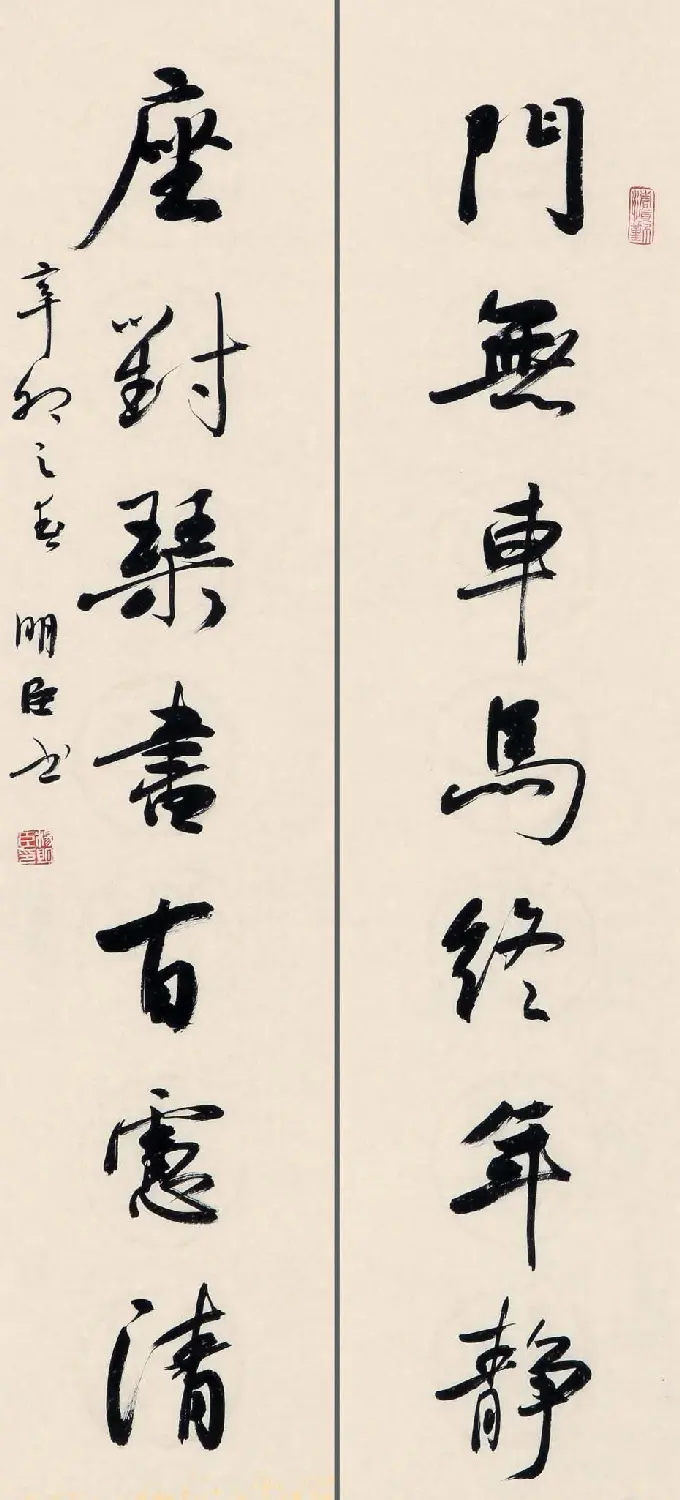 門無車馬終年静
座對琹書百慮清
辛卯之春 明臣书